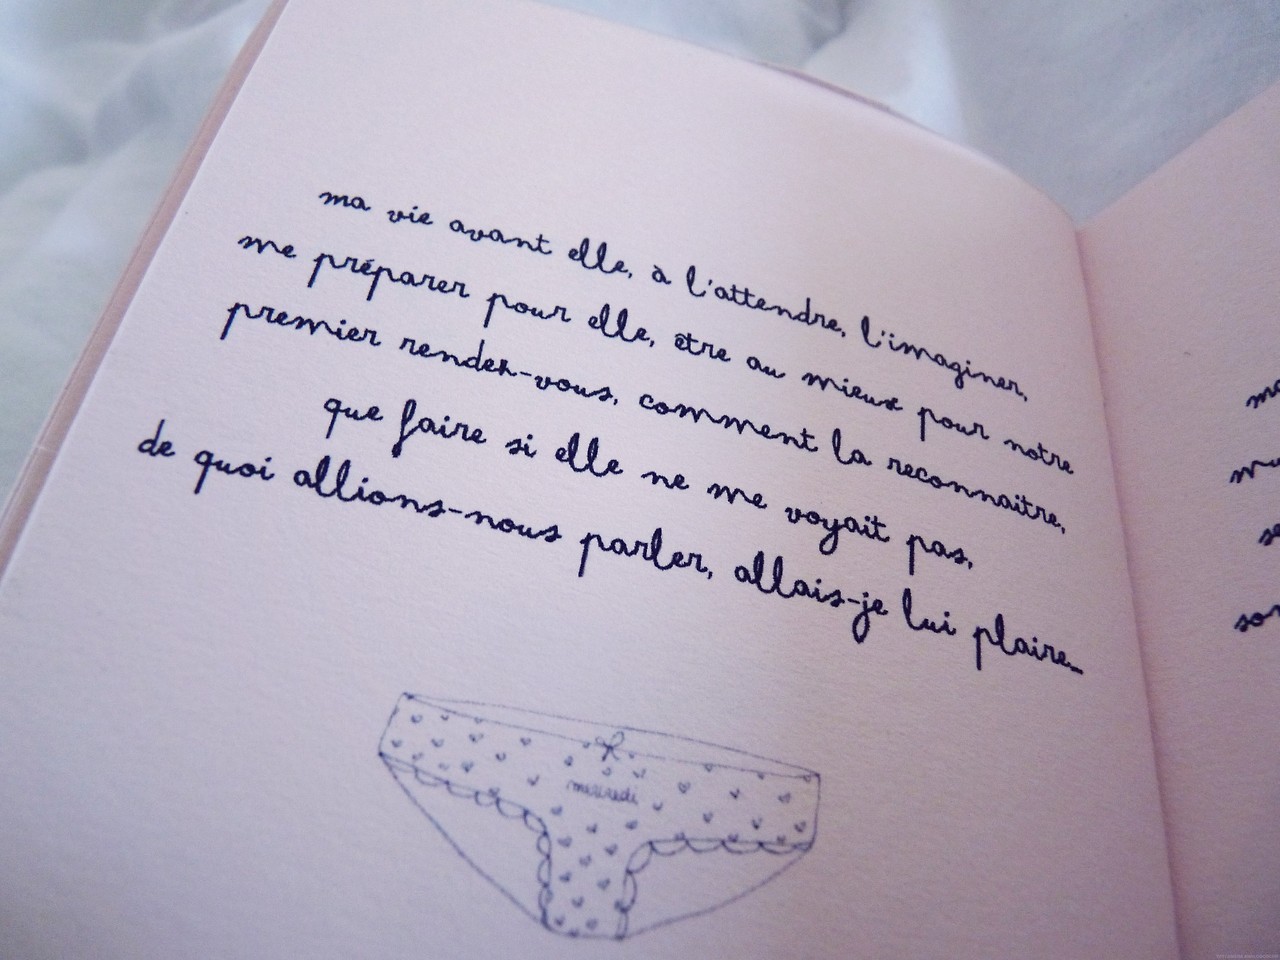 ma vie avant elle, à l'attendre, l'imaginer,
me préparer pour elle, être au mieux pour notre
premier rendez-vous, comment la reconnaitre,
que faire si elle ne me voyait pas,
de quoi allions-nous parler, allais-je lui plaire...
mercredi